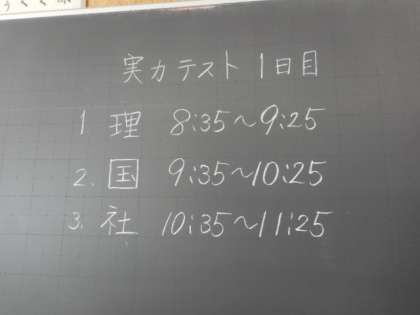 実力テスト 1日目
1 理 8:35〜9:25
2. 国 9:35〜10:25
3. 社 10:35〜11:25